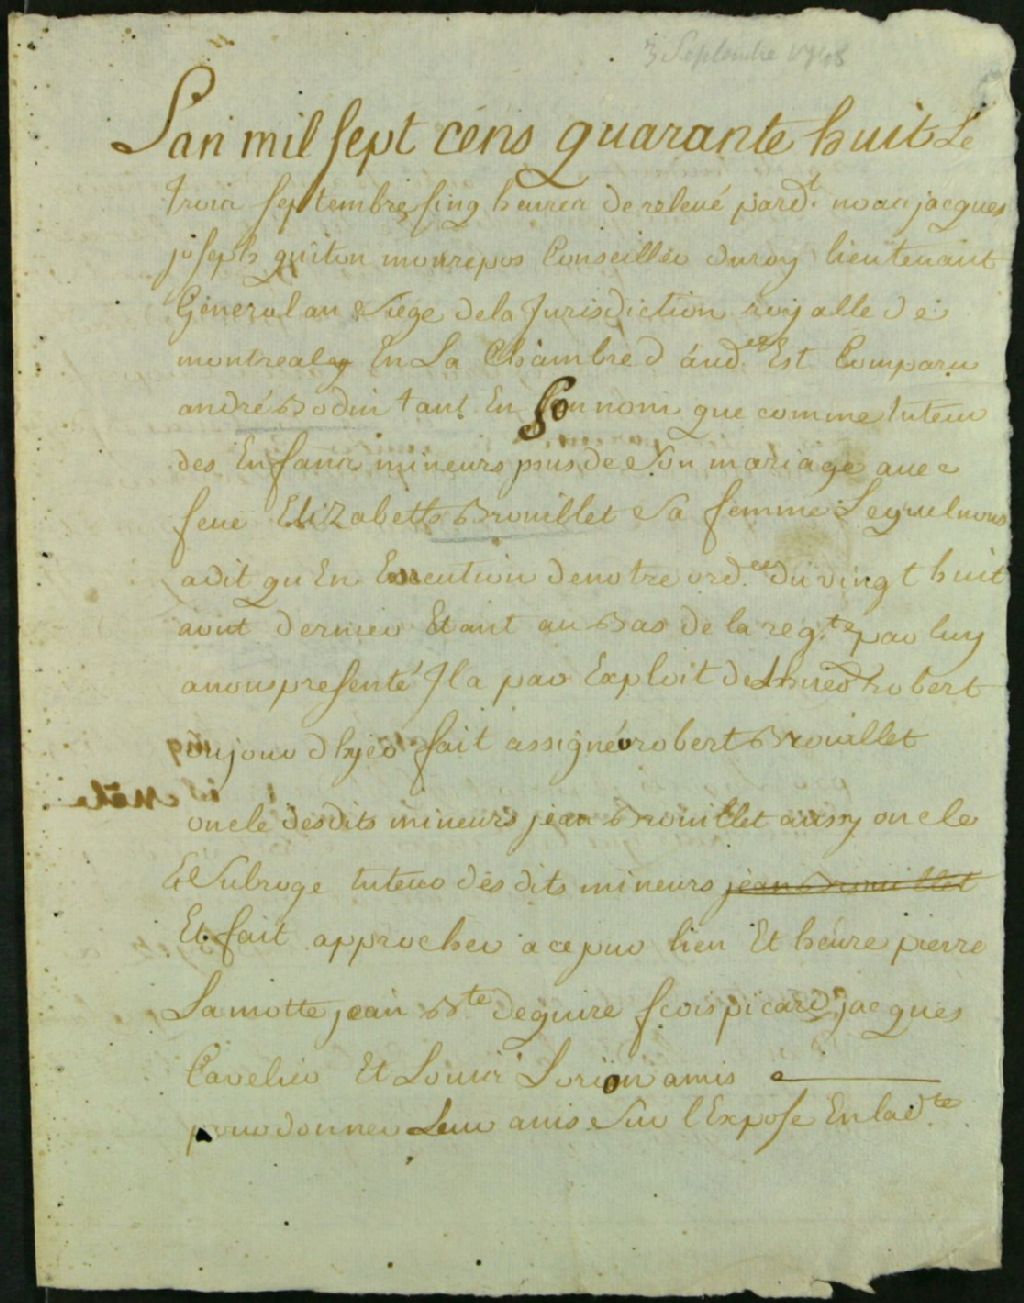 3 Septembre 1748
Lan mil sept cens quarante huit Le
trois septembre sinq heures de relevé pard.t nous jacques
joseph guiton monrepos Conseiller du roy lieutenant
Géneral au Siege dela Jurisdiction royalle de
montreal En La Chambre d aud.ce Est Comparu
andré Bodin tant En son nom que comme tuteur
des Enfans mineurs issus de Son mariage avec
feue Elizabeth Brouillet Sa femme Lequel nous
a dit qu En Execution de notre ord.ce du vingt huit
aout dernier Etant au Bas de la reg.te par luy
a nous presenté Il a par Exploit de robert
du jour dhyer fait assigner robert Brouillet
oncle desdits mineurs jean Brouillet aussy oncle
Et Subroge tuteur des dits mineurs jean Brouillet
Et fait approcher a ce jour lieu Et heure pierre
Lamotte jean B.te deguire fcois picard jacques
Cavelier Et Louis Lorion amis
pour donner Leur avis Sur l Expose En lad.te